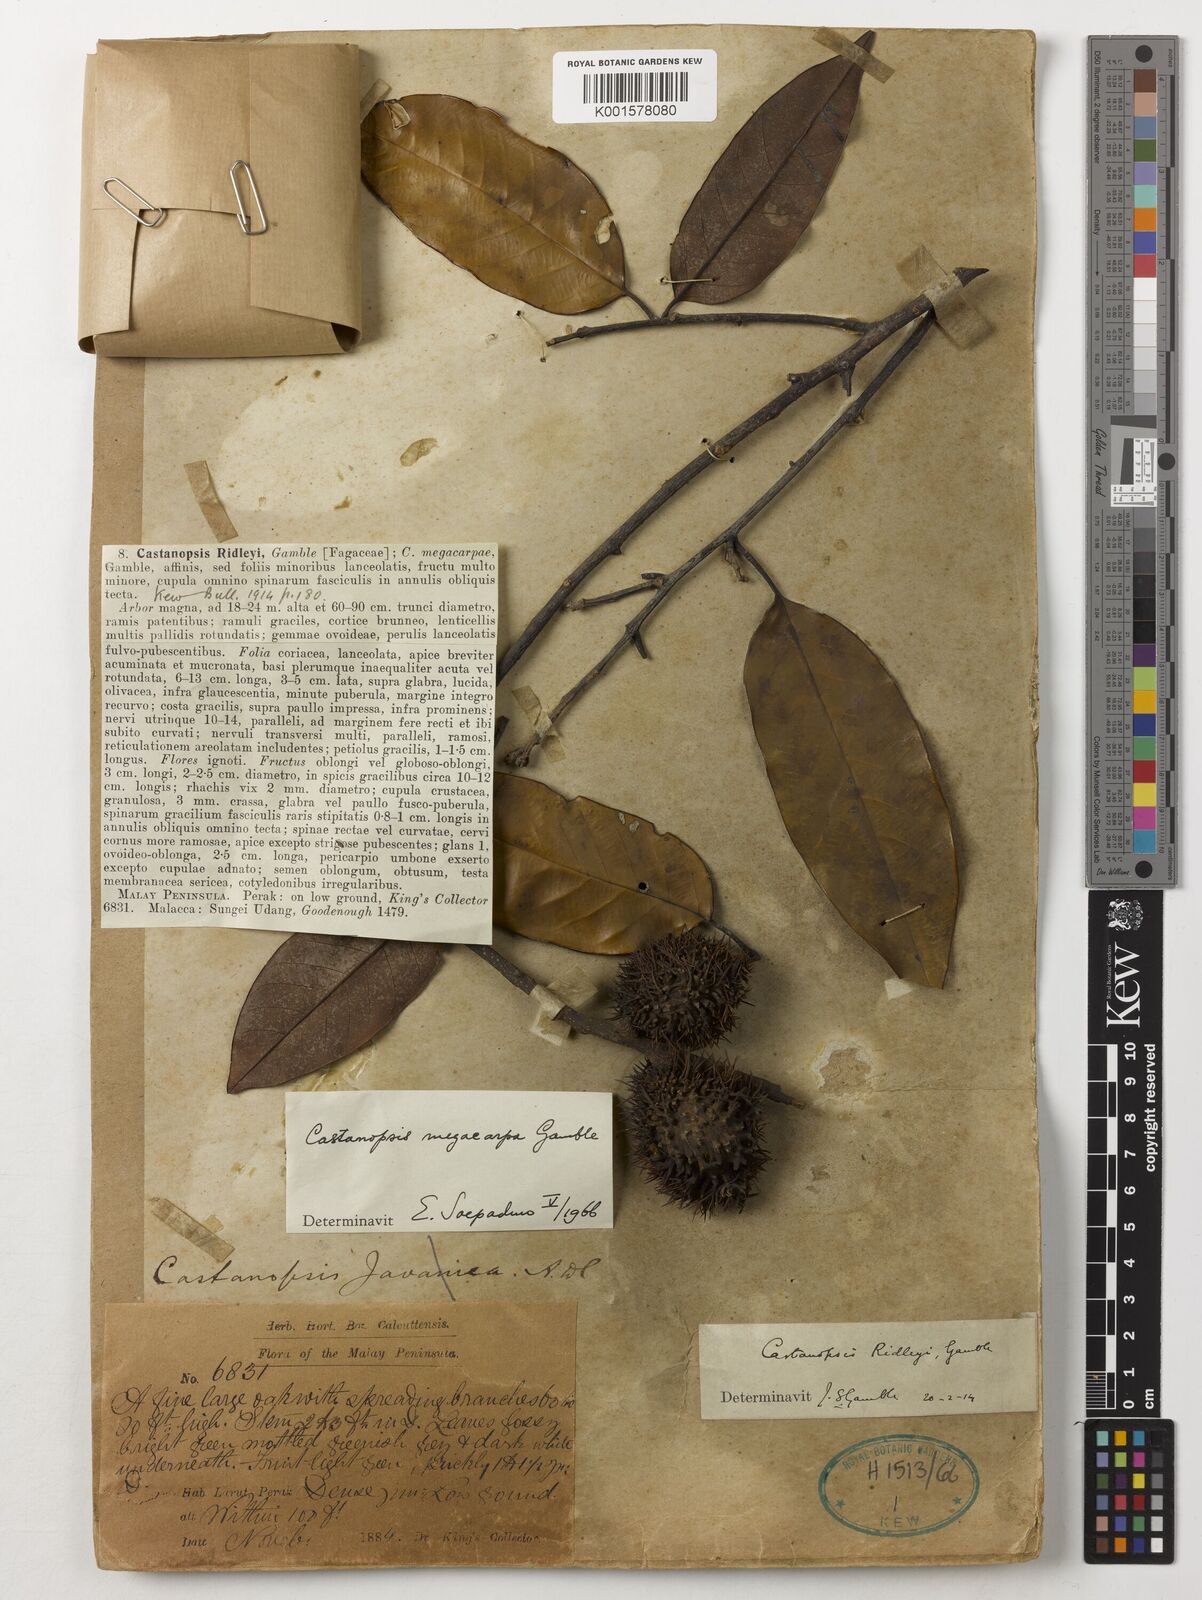 ROYAL BOTANIC GARDENS KEW
K001578080
8. Castanopsis Ridleyi, Gamble [Fagaceae]; C. megacarpae,
Gamble, affinis, sed foliis minoribus lanceolatis, fructu multo
minore, cupula omnino spinarum fasciculis in annulis obliquis
tecta. Kew Bull. 1914 p. 180.
Arbor magna, ad 18-24 m. alta et 60-90 cm. trunci diametro,
ramis patentibus; ramuli graciles, cortice brunneo, lenticellis
multis pallidis rotundatis; gemmae ovoideae, perulis lanceolatis
fulvo-pubescentibus. Folia coriacea, lanceolata, apice breviter
acuminata et mucronata, basi plerumque inaequaliter acuta vel
rotundata, 6-13 cm. longa, 3-5 cm. lata, supra glabra, lucida,
olivacea, infra glaucescentia, minute puberula, margine integro
recurvo; costa gracilis, supra paullo impressa, infra prominens;
nervi utrinque 10-14, paralleli, ad marginem fere recti et ibi
subito curvati; nervuli transversi multi, paralleli, ramosi,
reticulationem areolatam includentes; petiolus gracilis, 1-1·5 cm.
longus. Flores ignoti. Fructus oblongi vel globoso-oblongi,
3 cm. longi, 2-2·5 cm. diametro, in spicis gracilibus circa 10-12
cm. longis; rhachis vix 2 mm. diametro; cupula crustacea,
granulosa, 3 mm. crassa, glabra vel paullo fusco-puberula,
spinarum gracilium fasciculis raris stipitatis 0·8-1 cm. longis in
annulis obliquis omnino tecta; spinae rectae vel curvatae, cervi
cornus more ramosae, apice excepto strigose pubescentes; glans 1,
ovoideo-oblonga, 2·5 cm. longa, pericarpio umbone exserto
excepto cupulae adnato; semen oblongum, obtusum, testa
membranacea sericea, cotyledonibus irregularibus.
MALAY PENINSULA. Perak: on low ground, King's Collector
6831. Malacca: Sungei Udang, Goodenough 1479.
Castanopsis megacarpa Gamble
Determinavit E. Soepadmo V/1966
Castanopsis Javanica. A. DC
Herb. Hort. Bot. Calcuttensis.
Flora of the Malay Peninsula.
No. 6831
A fine large oak with spreading branches 60 to
90 ft. high. Stem 2 to 3 ft. in D. Leaves glossy
bright green mottled greenish grey & dark white
underneath. Fruit light green, prickly 1 to 1 1/2 in:
D. Hab Larut, Perak Dense, Low ground.
alt Within 100 ft
Date 1884. Dr King's Collector
Castanopsis Ridleyi, Gamble
Determinavit J. S. Gamble 20-2-14
ROYAL BOTANIC GARDENS
H 1513/66
1
KEW
inches
D50 Illuminant, 2 degree observer
Density
Golden Thread
Colors by Munsell Color Services Lab
Don Williams
Kew
Royal Botanic Gardens
0 1 2 3 4 5 6 7 8 9 10
cm
copyright reserved